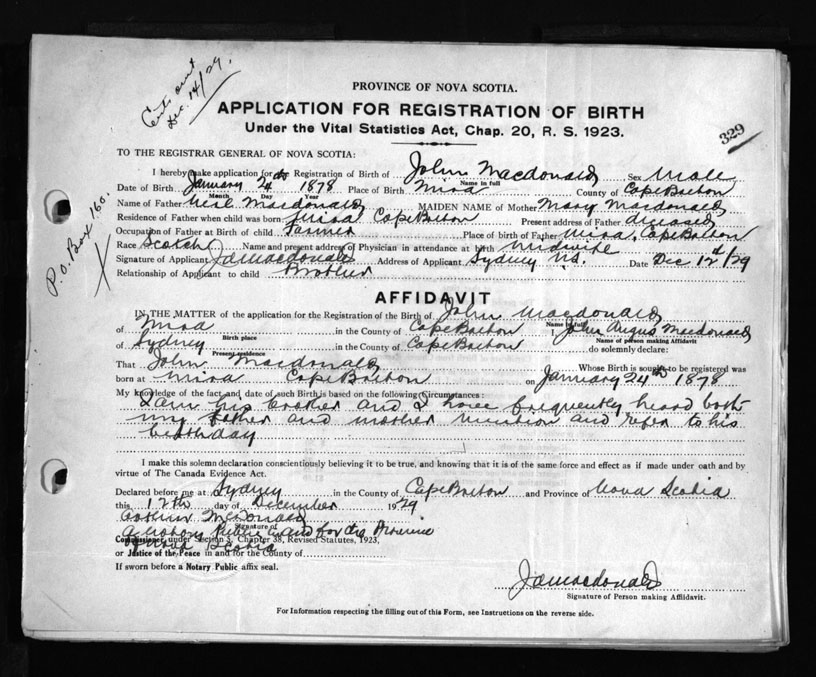 Cert. out
Dec. 14/29.
329
PROVINCE OF NOVA SCOTIA.
APPLICATION FOR REGISTRATION OF BIRTH
Under the Vital Statistics Act, Chap. 20, R. S. 1923.
TO THE REGISTRAR GENERAL OF NOVA SCOTIA:
I hereby make application for Registration of Birth of John Macdonald Sex Male
Name in full
Date of Birth January 24 1878 Place of Birth Mira County of Cape Breton
Month Day Year
Name of Father Neil Macdonald MAIDEN NAME of Mother Mary Macdonald
Residence of Father when child was born Mira Cape Breton Present address of Father diseased
Occupation of Father at Birth of child Farmer Place of birth of Father Mira, Cape Breton
Race Scotch Name and present address of Physician in attendance at birth Midwife
Signature of Applicant JaMacdonald Address of Applicant Sydney N.S. Date Dec 12th/29
Relationship of Applicant to child Brother
P.O. Box 160.
AFFIDAVIT
IN THE MATTER of the application for the Registration of the Birth of John Macdonald
Name in full
of Mira in the County of Cape Breton I, John Angus Macdonald
Birth place Name of person making Affidavit
of Sydney in the County of Cape Breton do solemnly declare:
Present residence
That John Macdonald Whose Birth is sought to be registered was
born at Mira Cape Breton on January 24th 1878
My knowledge of the fact and date of such Birth is based on the following Circumstances:
I am his brother and I have frequently heard both
my father and mother mention and refer to his
birthday
I make this solemn declaration conscientiously believing it to be true, and knowing that it is of the same force and effect as if made under oath and by
virtue of The Canada Evidence Act.
Declared before me at Sydney in the County of Cape Breton and Province of Nova Scotia
this 12th day of December 1929
McDonald
Signature of
A Notary Public in and for the Province
of Nova Scotia
Commissioner under Section 3, Chapter 38, Revised Statutes, 1923,
or Justice of the Peace in and for the County of
If sworn before a Notary Public affix seal.
JaMacdonald
Signature of Person making Affidavit.
For Information respecting the filling out of this Form, see Instructions on the reverse side.